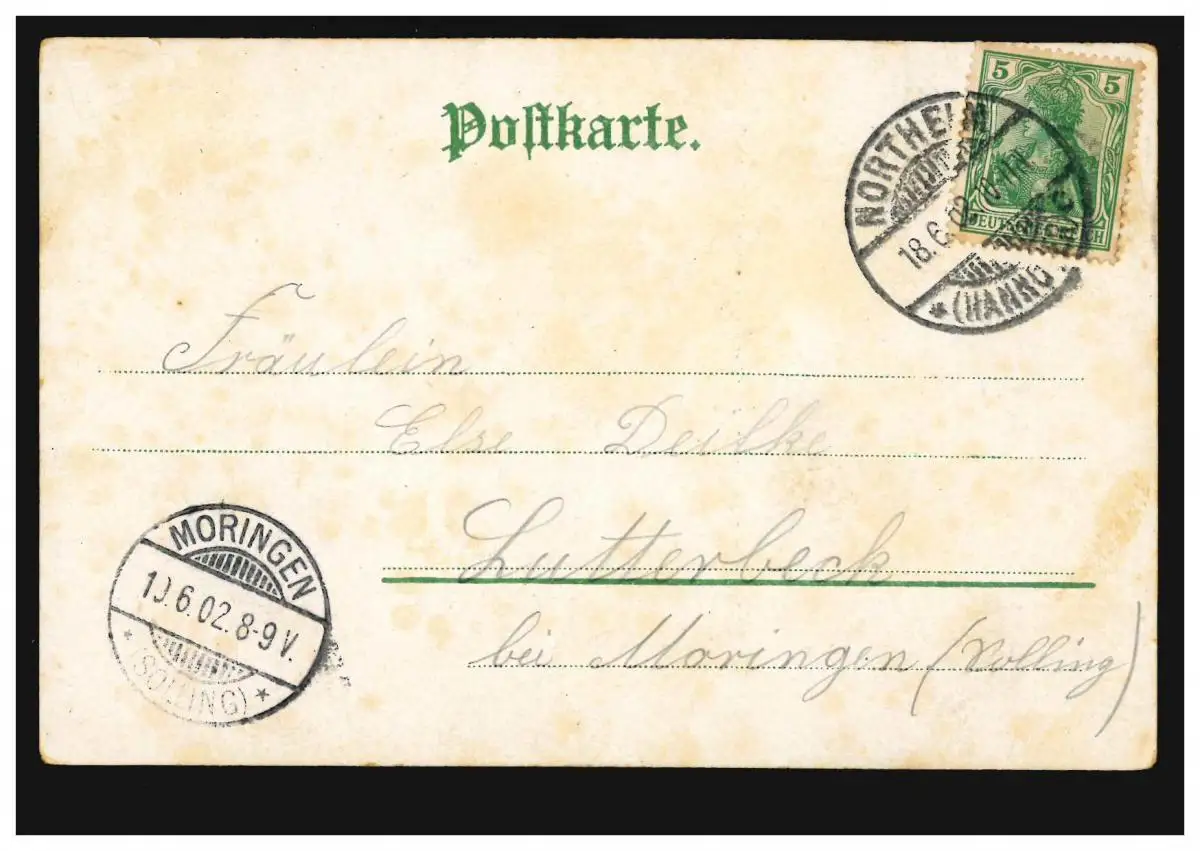 Postkarte.
5 5
DEUTSCHES REICH
NORTHEIM
18.6.
* (HANNO
Fräulein
Else Deilke
Lutterbeck
bei Moringen (Solling)
MORINGEN
19.6.02.8-9V.
* (SOLLING) *